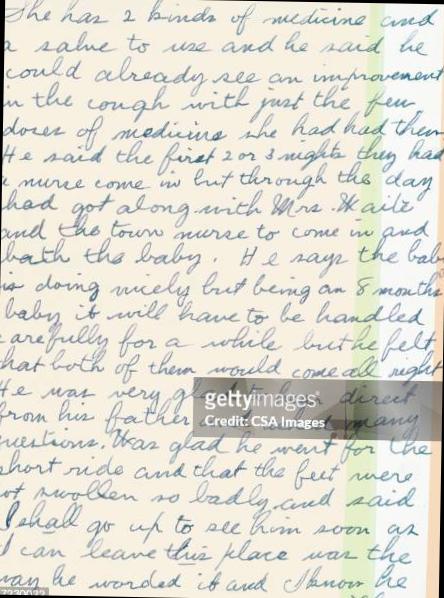 She has 2 kinds of medicine and
a salve to use and he said he
could already see an improvement
in the cough with just the few
doses of medicine she had had then
He said the first 2 or 3 nights they had
a nurse come in but through the day
had got along with Mrs. Waite
and the town nurse to come in and
bath the baby. He says the bab
is doing nicely but being an 8 months
baby it will have to be handled
carefully for a while but he felt
that both of them would come all right
He was very direct
from his father many
questions. Was glad he went for the
short ride and that the feet were
not swollen so badly and said
I shall go up to see him soon as
I can leave this place was the
way he worded it and I know he
gettyimages
Credit: CSA Images